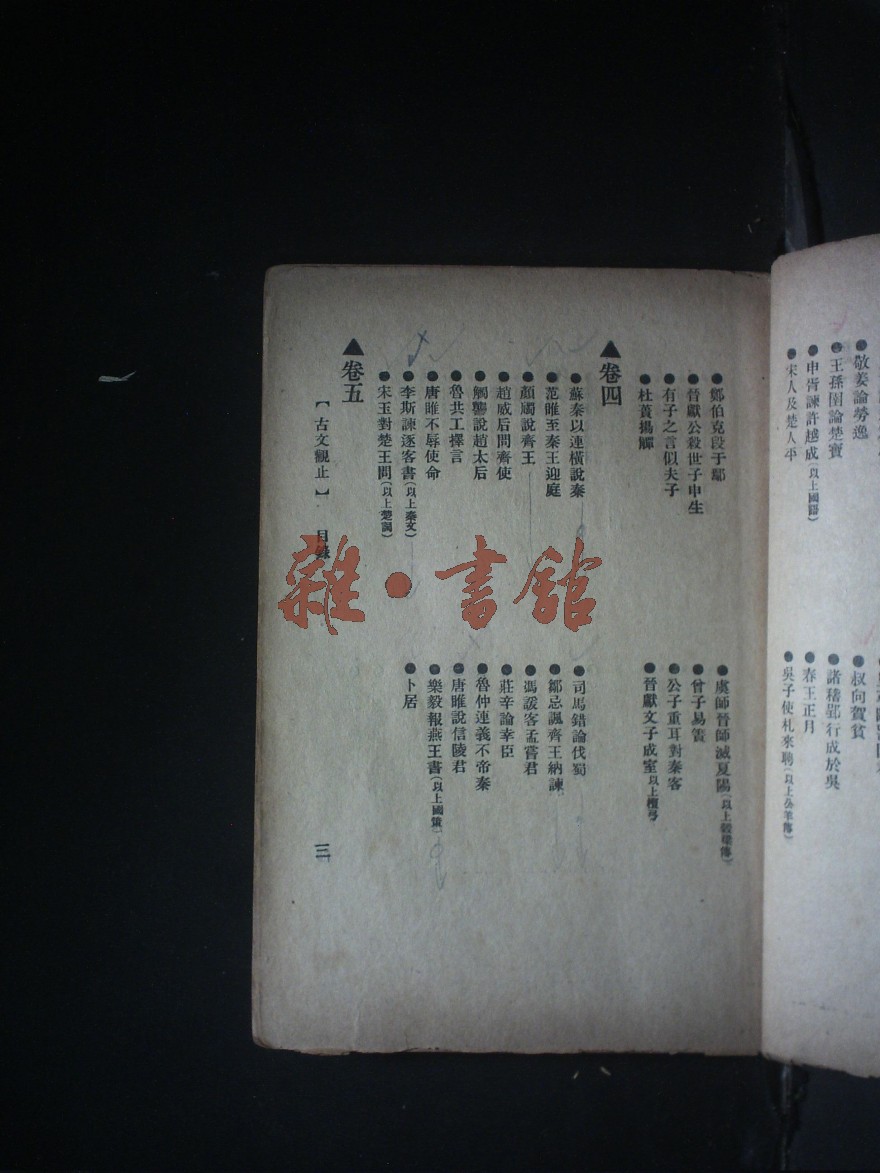 敬姜論勞逸
叔向賀貧
●王孫圉論楚寶
●諸稽郢行成於吳
●申胥諫許越成(以上國語)
●春王正月
●宋人及楚人平
●吳子使札來聘(以上公羊傳)
●鄭伯克段于鄢
●虞師晉師滅夏陽(以上穀梁傳)
●晉獻公殺世子申生
●曾子易簀
●有子之言似夫子
●公子重耳對秦客
●杜蕢揚觶
●晉獻文子成室(以上檀弓)
▲卷四
●蘇秦以連橫說秦
●司馬錯論伐蜀
●范雎至秦王迎庭
●鄒忌諷齊王納諫
●顏斶說齊王
●馮諼客孟嘗君
●趙威后問齊使
●莊辛論幸臣
●觸讋說趙太后
●魯仲連義不帝秦
●魯共工擇言
●唐睢說信陵君
●唐睢不辱使命
●樂毅報燕王書(以上國策)
●李斯諫逐客書(以上秦文)
●卜居
●宋玉對楚王問(以上楚詞)
▲卷五
【古文觀止】 目錄
三
雜·書館